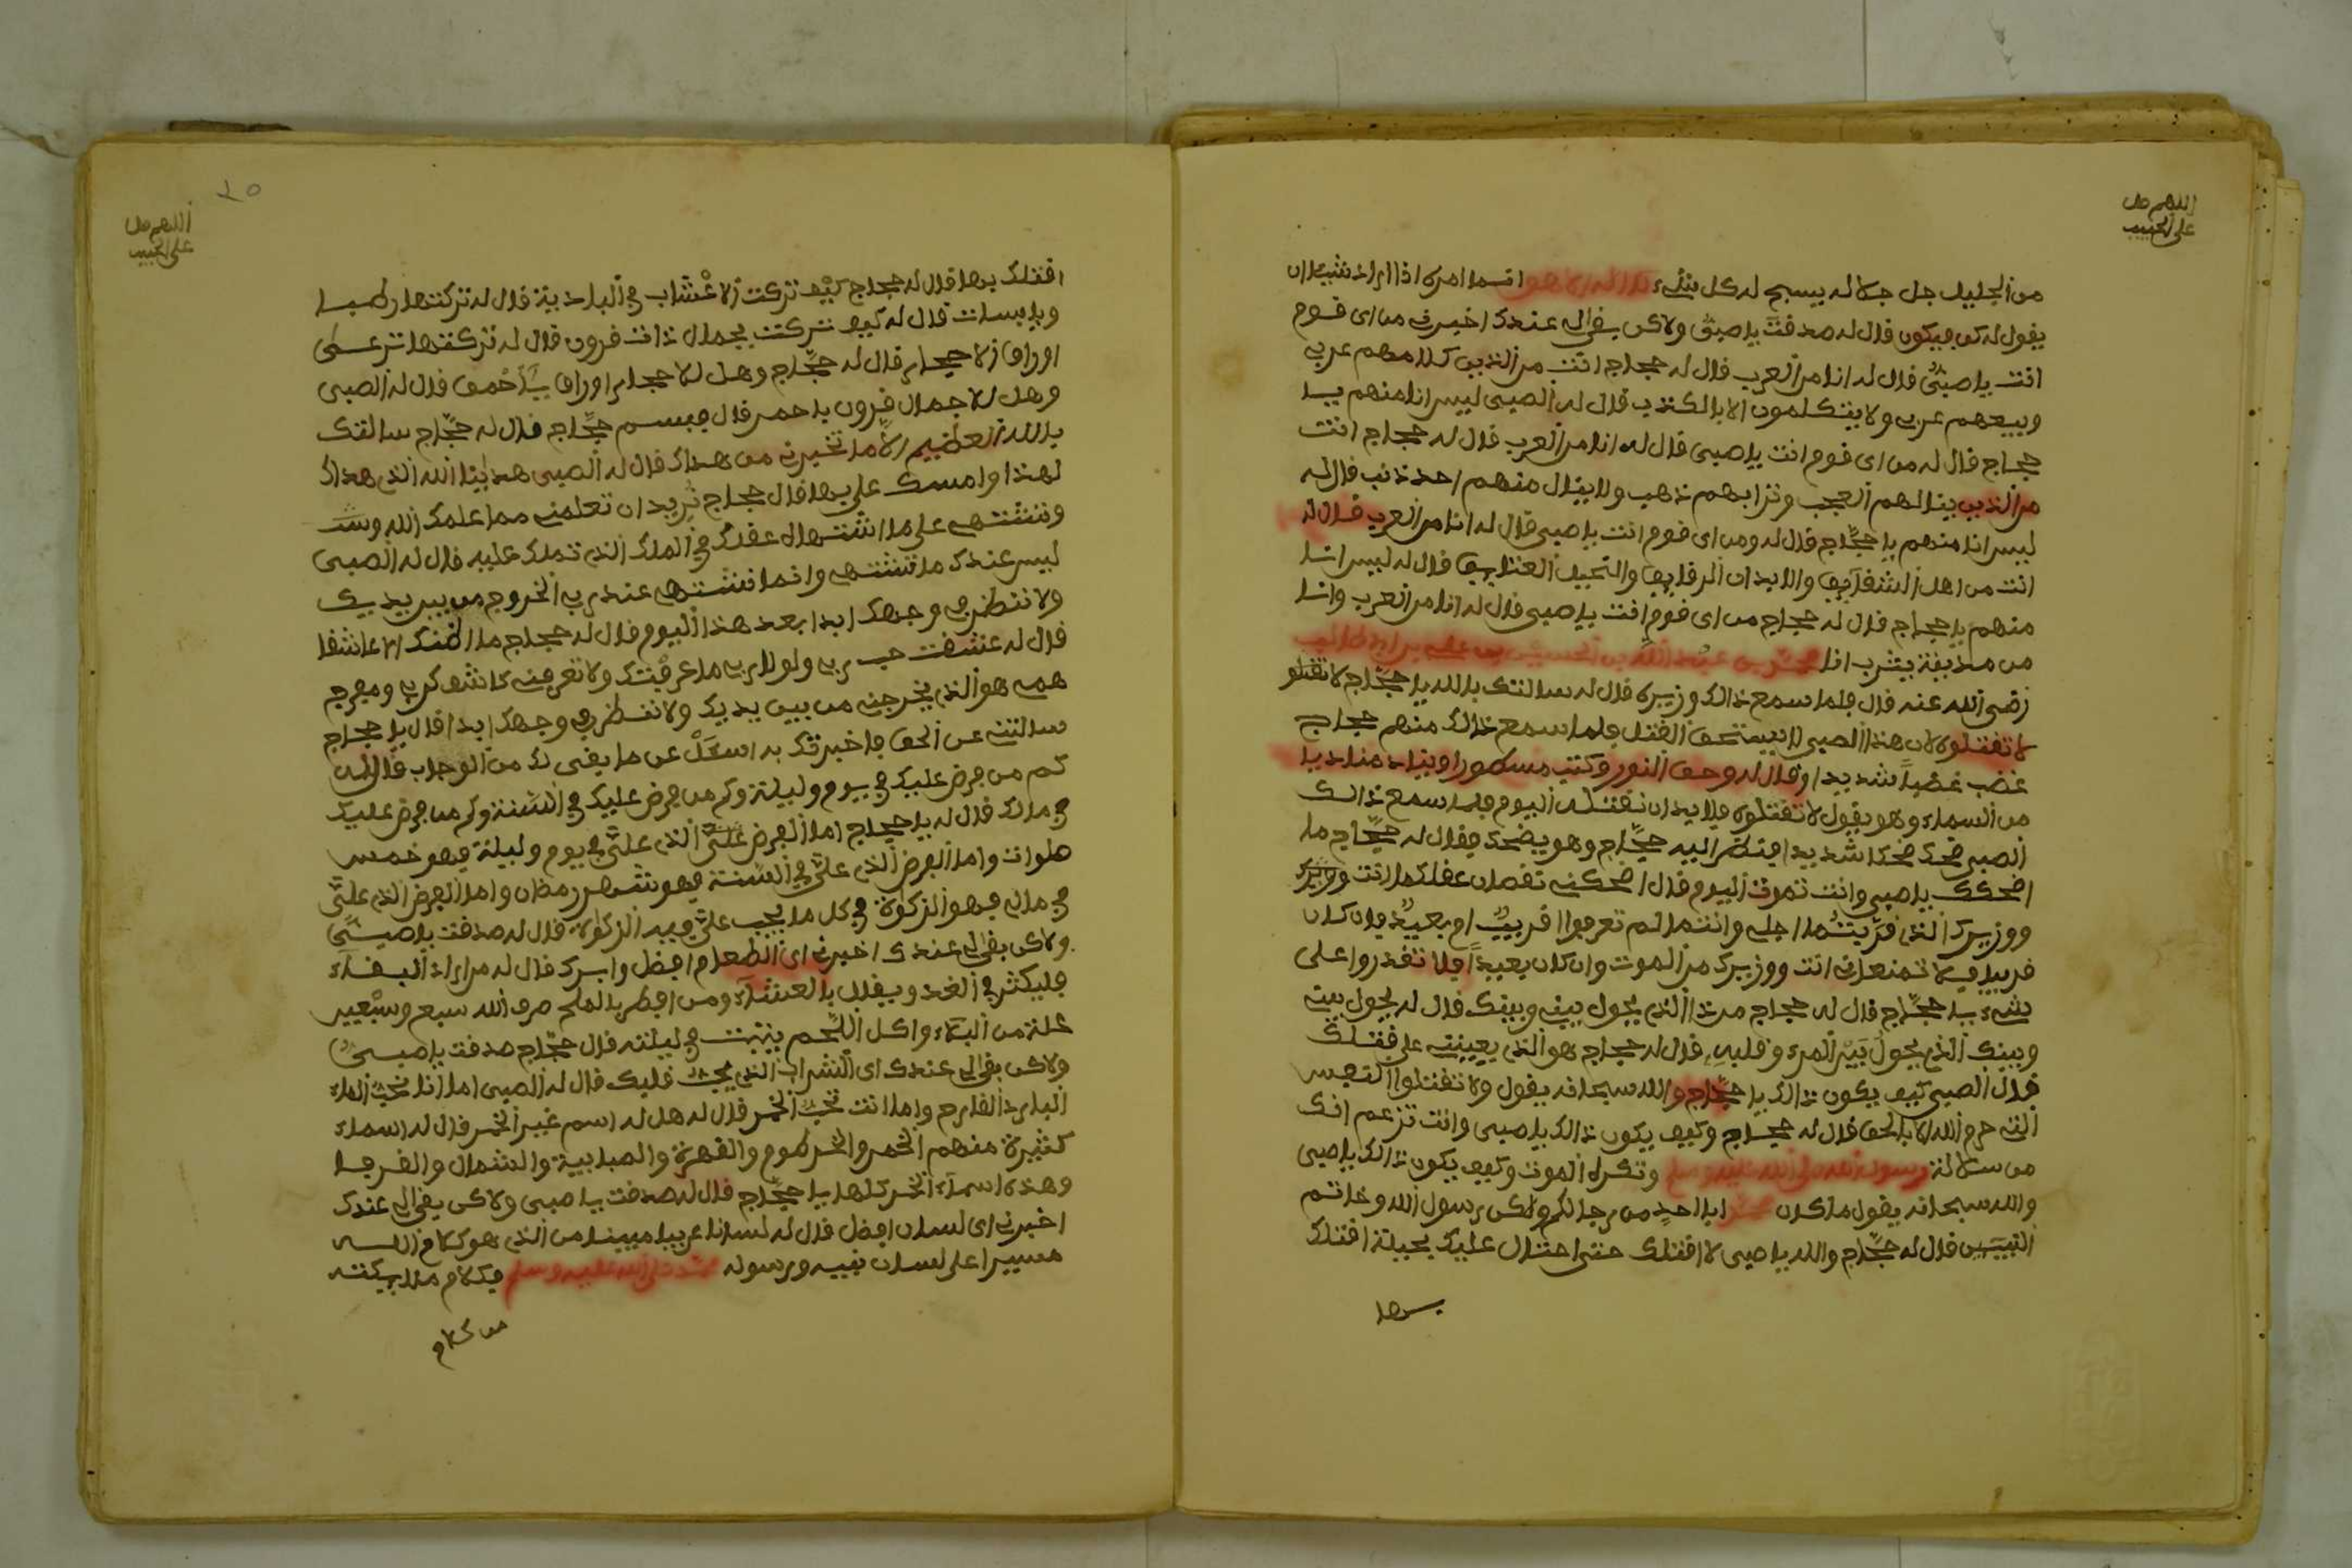 اللهم صل
على الحبيب
من الجليل جل جلاله يسبح له كل شيء لا اله الا هو انما امره اذا اراد شيئا ان
يقول له كن فيكون قال له صدقت يا صبي ولاكن بقى لي عندك اخبرني من اي قوم
انت يا صبي قال له انا من العرب قال له حجاج انت من الذين كلامهم عربي
وبيعهم عربي ولا يتكلمون الا بالكذب قال له الصبي ليس انا منهم يا
حجاج قال له من اي قوم انت يا صبي قال له انا من العرب قال له حجاج انت
من الذين ينالهم العجب وترابهم ذهب ولا ينال منهم احد ذنب قال له
ليس انا منهم يا حجاج قال له ومن اي قوم انت يا صبي قال له انا من العرب قال له
انت من اهل الشقايق والابدان الرقايق والخيل العتايق قال له ليس انا
منهم يا حجاج قال له حجاج من اي قوم انت يا صبي قال له انا من العرب وانا
من مدينة يثرب انا محمد بن عبد الله بن الحسين بن علي بن ابي طالب
رضي الله عنه قال فلما سمع ذالك وزيره قال له سالتك بالله يا حجاج لا تقتلو
لا تقتلوه لان هذا الصبي لا يستحق القتل فلما سمع ذالك منهم حجاج
غضب غضبا شديدا وقال له وحق النور وكتب مسطورا وينادي مناديا
من السماء وهو يقول لا تقتلوه فلا بد ان نقتله اليوم فلما سمع ذالك
الصبي ضحك ضحكا شديدا فنظر اليه حجاج وهو يضحك فقال له حجاج ما
اضحكك يا صبي وانت تموت اليوم قال اضحكني نقصان عقلك ما انت ووزيرك
ووزيرك الذي قربتما اجلي وانتما لم تعرفوا قريب ام بعيد فان كان
قريبا فلا تمنعاني انت ووزيرك من الموت وان كان بعيدا فلا تقدروا على
شيء يا حجاج قال له حجاج من ذا الذي يحول بيني وبينك قال له يحول بيني
وبينك الذي يحول بين المرء وقلبه قال له حجاج هو الذي يعينني على قتلك
قال الصبي كيف يكون ذالك يا حجاج والله سبحانه يقول ولا تقتلوا النفس
التي حرم الله الا بالحق قال له حجاج وكيف يكون ذالك يا صبي وانت تزعم انك
من سلالة رسول الله صلى الله عليه وسلم وتكره الموت وكيف يكون ذالك يا صبي
والله سبحانه يقول ما كان محمد ابا احد من رجالكم ولكن رسول الله وخاتم
النبيين قال له حجاج والله يا صبي لا اقتلك حتى احتال عليك بحيلة اقتلك
بها
٢٥
اللهم صل
على الحبيب
اقتلك بها قال له حجاج كيف تركت الاعشاب في البادية قال له تركتها رطبا
ويابسات قال له كيف تركت يجمال ذات قرون قال له تركتها ترعى
اوراق الاحجار قال له حجاج وهل للاحجار اوراق يا احمق قال له الصبي
وهل للاجمال قرون يا حمر قال فبسم حجاج قال له حجاج سالتك
بالله العظيم الا ما تخبرني من هداك قال له الصبي هدينا الله الذي هداك
لهذا وامسك على بها قال حجاج تريد ان تعلمني مما علمك الله وشـ
وتشتهي على ما اشتهاك عقلك في الملك الذي تملك عليه قال له الصبي
ليس عندك ما تشتهي وانما نشتهي عند ربي الخروج من بين يديك
ولا ننظر في وجهك ابدا بعد هذا اليوم قال له حجاج ما اظنك الا عاشقا
قال له عشقت حب ربي ولولا ربي ما عرفتك ولا تعرفني كاشف كربي ومفرج
همي هو الذي يخرجني من بين يديك ولا ننظر في وجهك ابدا قال يا حجاج
سالتني عن الحق فاخبرتك به اسعل عن ما بقى لك من الوجاب قال له
كم من فرض عليك في يوم وليلة وكم من فرض عليك في السنة وكم من فرض عليك
في مالك قال له يا حجاج اما الفرض علي الذي علي في يوم وليلة فهو خمس
صلوات واما الفرض الذي علي في السنة فهو شهر رمضان واما الفرض الذي علي
في مالي فهو الزكواة في كل ما يجب علي فيه الزكواة قال له صدقت يا صبي
ولاكن بقى لي عندك اخبرني اي الطعام افضل وابرك قال له من اراد البقاء
فليكثر في الغذ ويقلل بالعشاء ومن افطر بالملح صرف الله سبع وسبعين
علة من البلاء واكل اللحم ينبت في ليلته قال حجاج صدقت يا صبي
ولاكن بقى لي عندك اي الشراب الذي يحب قلبك قال له الصبي اما انا نحب الماء
البارد القارح واما انت تحب الخمر قال له هل له اسم غير الخمر قال له اسماء
كثيرة منهم الخمر والخرطوم والقهوة والصبابية والشمال والفرجا
وهذه اسماء الخمر كلها يا حجاج قال له صدقت يا صبي ولاكن بقى لي عندك
اخبرني اي لسان افضل قال له لسانا عربيا مبينا من الذي هو كلام الله
مسيرا على لسان نبيه ورسوله محمد صلى الله عليه وسلم فكلام ملايكته
من كلام